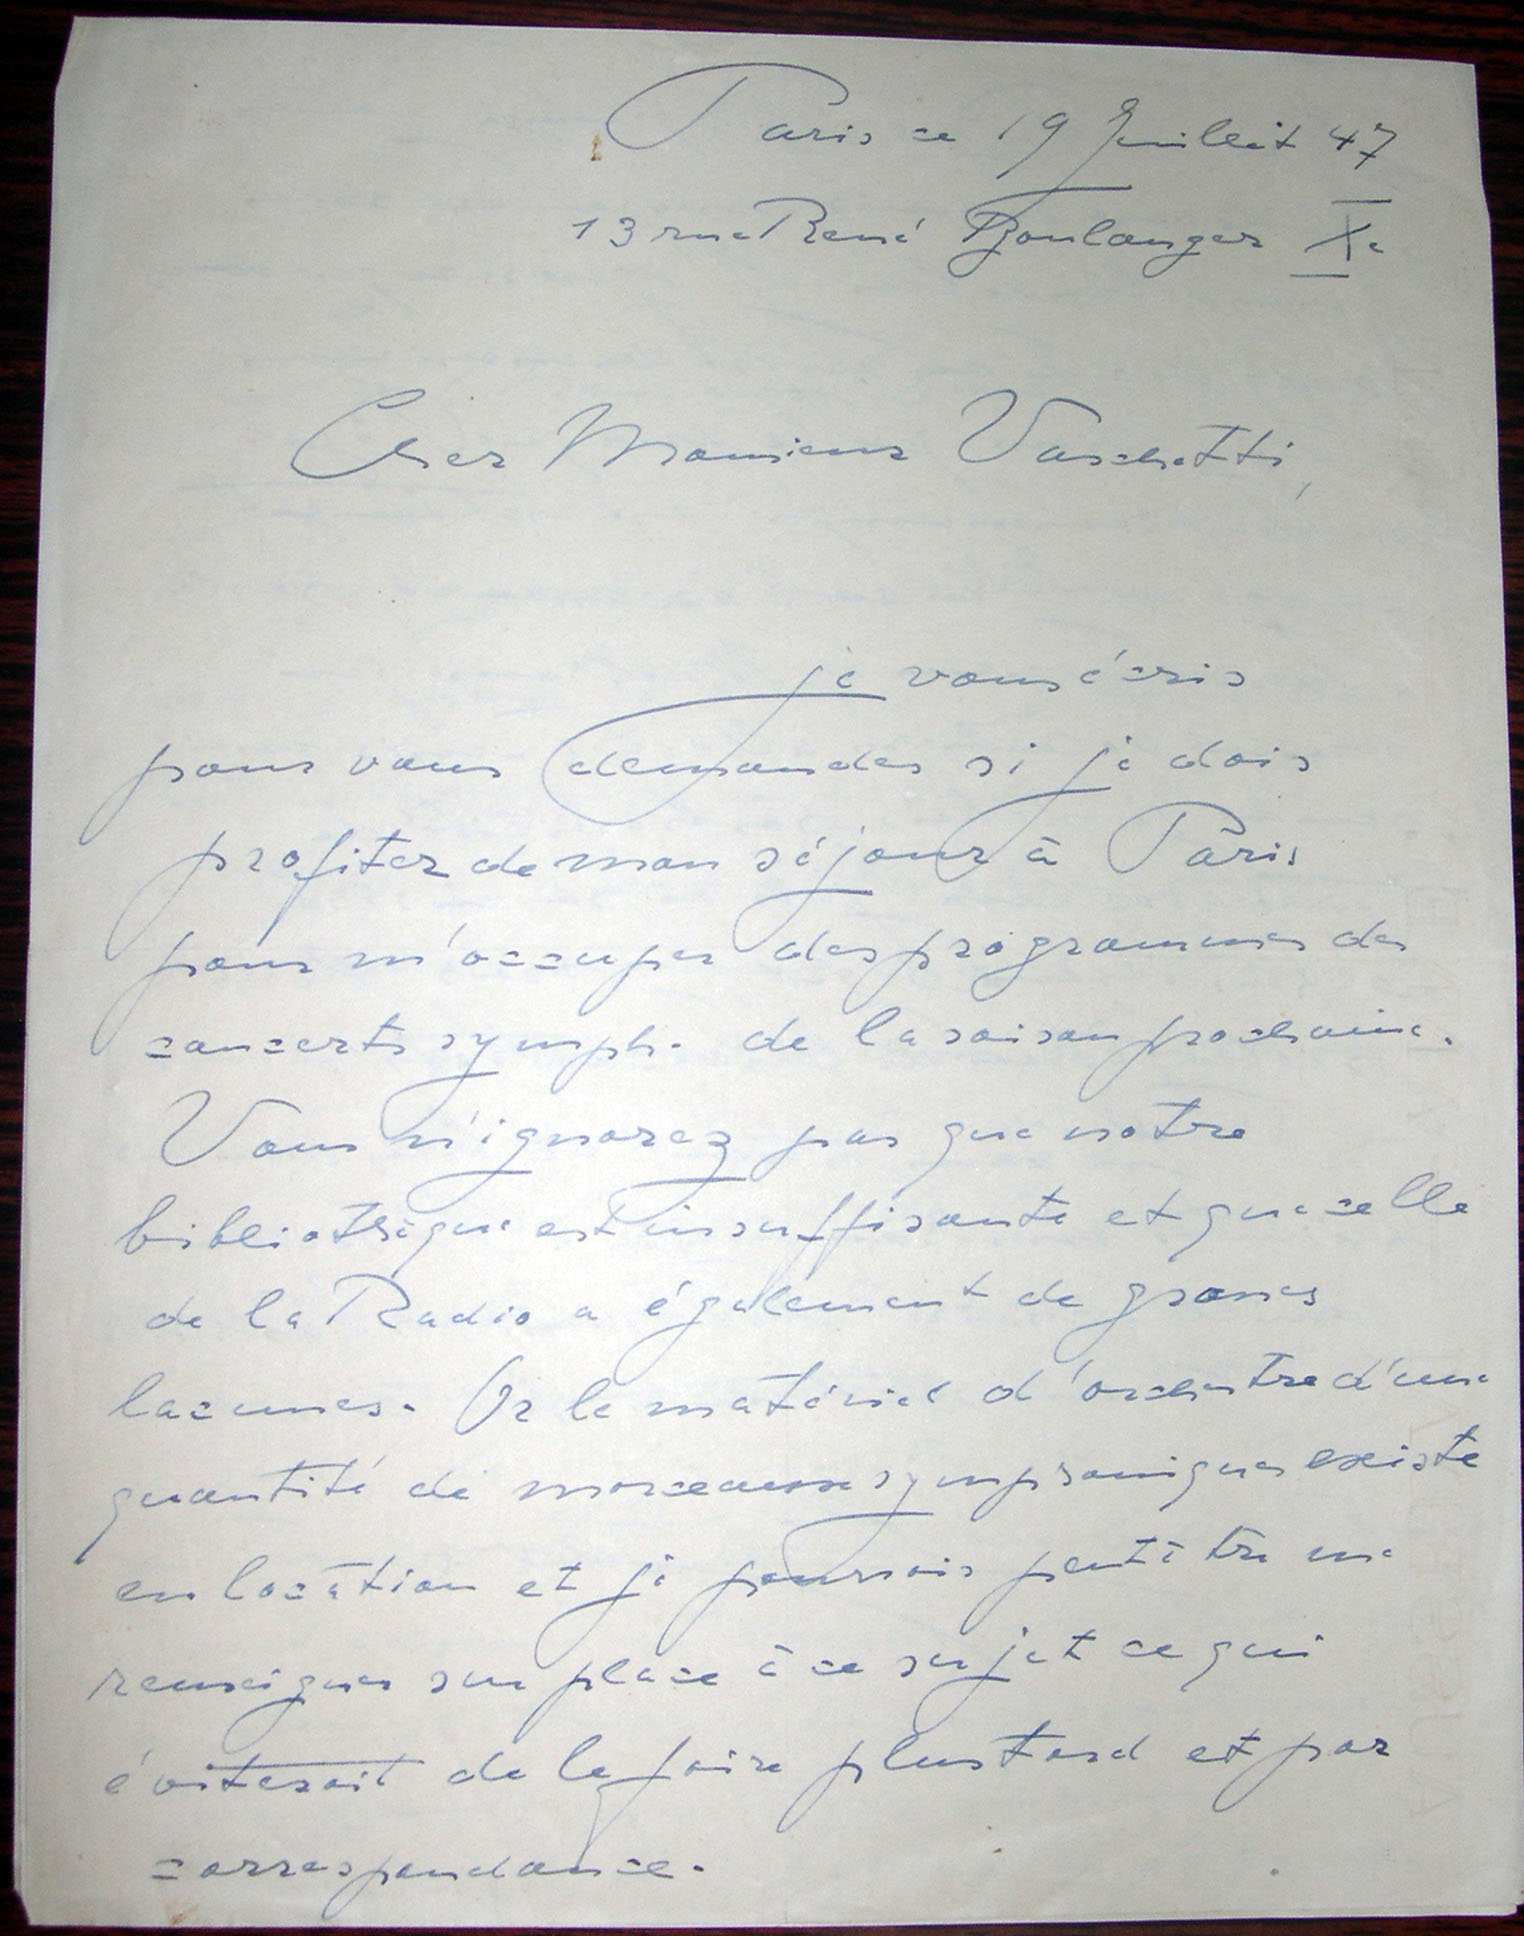 Paris ce 19 Juillet 47
13 rue René Boulanger Xe
Cher Monsieur Vaschetti,
je vous écris
pour vous demander si je dois
profiter de mon séjour à Paris
pour m'occuper des programmes des
concerts symph. de la saison prochaine.
Vous n'ignorez pas que notre
bibliothèque est insuffisante et que celle
de la Radio a également de graves
lacunes. Or le matériel d'orchestre d'une
quantité de morceaux symphoniques existe
en location et je pourrais peut être me
renseigner sur place à ce sujet ce qui
éviterait de le faire plus tard et par
correspondance.